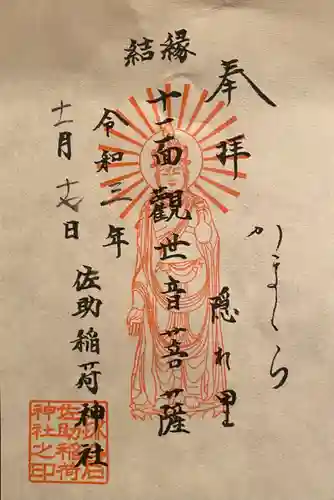 縁結
奉拝
かまくら
隠れ里
十一面觀世音菩薩
令和三年
十一月十七日
佐助稲荷神社
佐助稲荷
神社之印